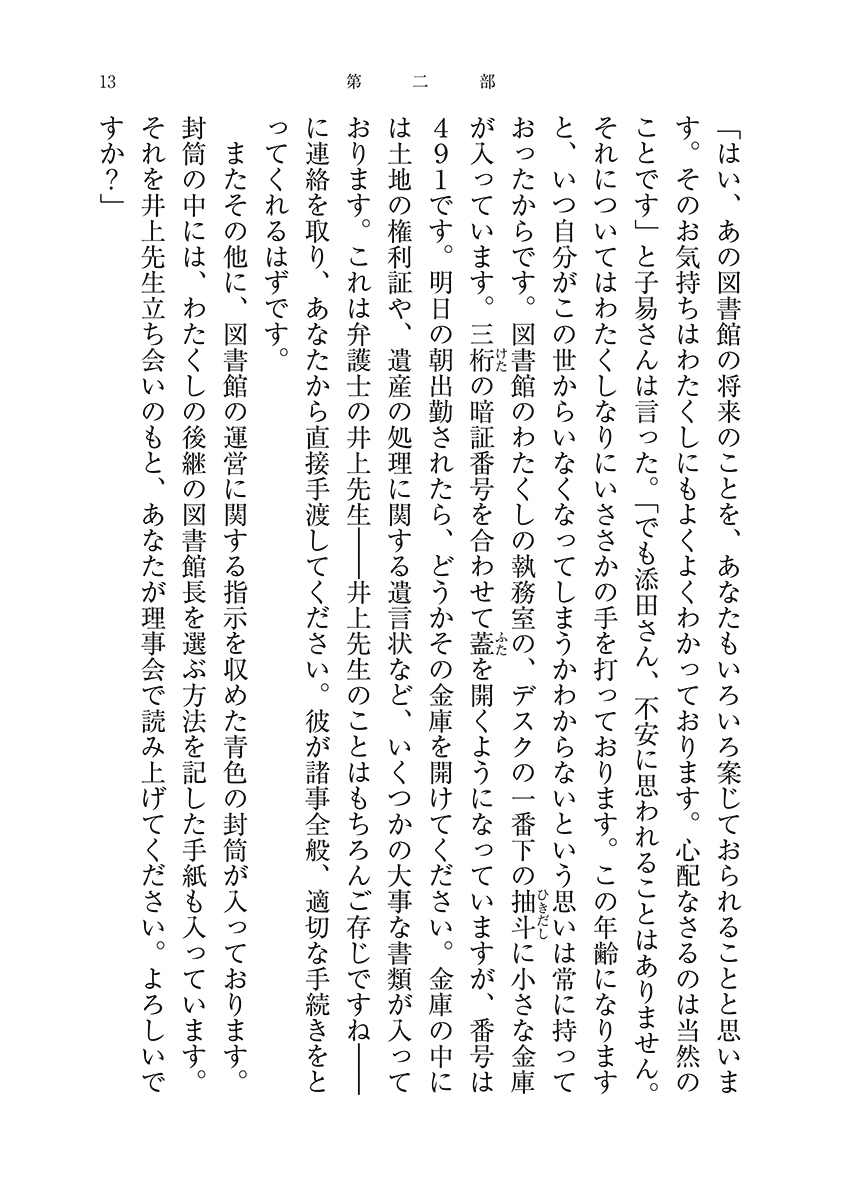 13
第二部
「はい、あの図書館の将来のことを、あなたもいろいろ案じておられることと思いま
す。そのお気持ちはわたくしにもよくよくわかっております。心配なさるのは当然の
ことです」と子易さんは言った。「でも添田さん、不安に思われることはありません。
それについてはわたくしなりにいささかの手を打っております。この年齢になります
と、いつ自分がこの世からいなくなってしまうかわからないという思いは常に持って
おったからです。図書館のわたくしの執務室の、デスクの一番下の抽斗に小さな金庫
ひきだし
が入っています。三桁の暗証番号を合わせて蓋を開くようになっていますが、番号は
けた
ふた
491です。明日の朝出勤されたら、どうかその金庫を開けてください。金庫の中に
は土地の権利証や、遺産の処理に関する遺言状など、いくつかの大事な書類が入って
おります。これは弁護士の井上先生――井上先生のことはもちろんご存じですね――
に連絡を取り、あなたから直接手渡してください。彼が諸事全般、適切な手続きをと
ってくれるはずです。
またその他に、図書館の運営に関する指示を収めた青色の封筒が入っております。
封筒の中には、わたくしの後継の図書館長を選ぶ方法を記した手紙も入っています。
それを井上先生立ち会いのもと、あなたが理事会で読み上げてください。よろしいで
すか？」